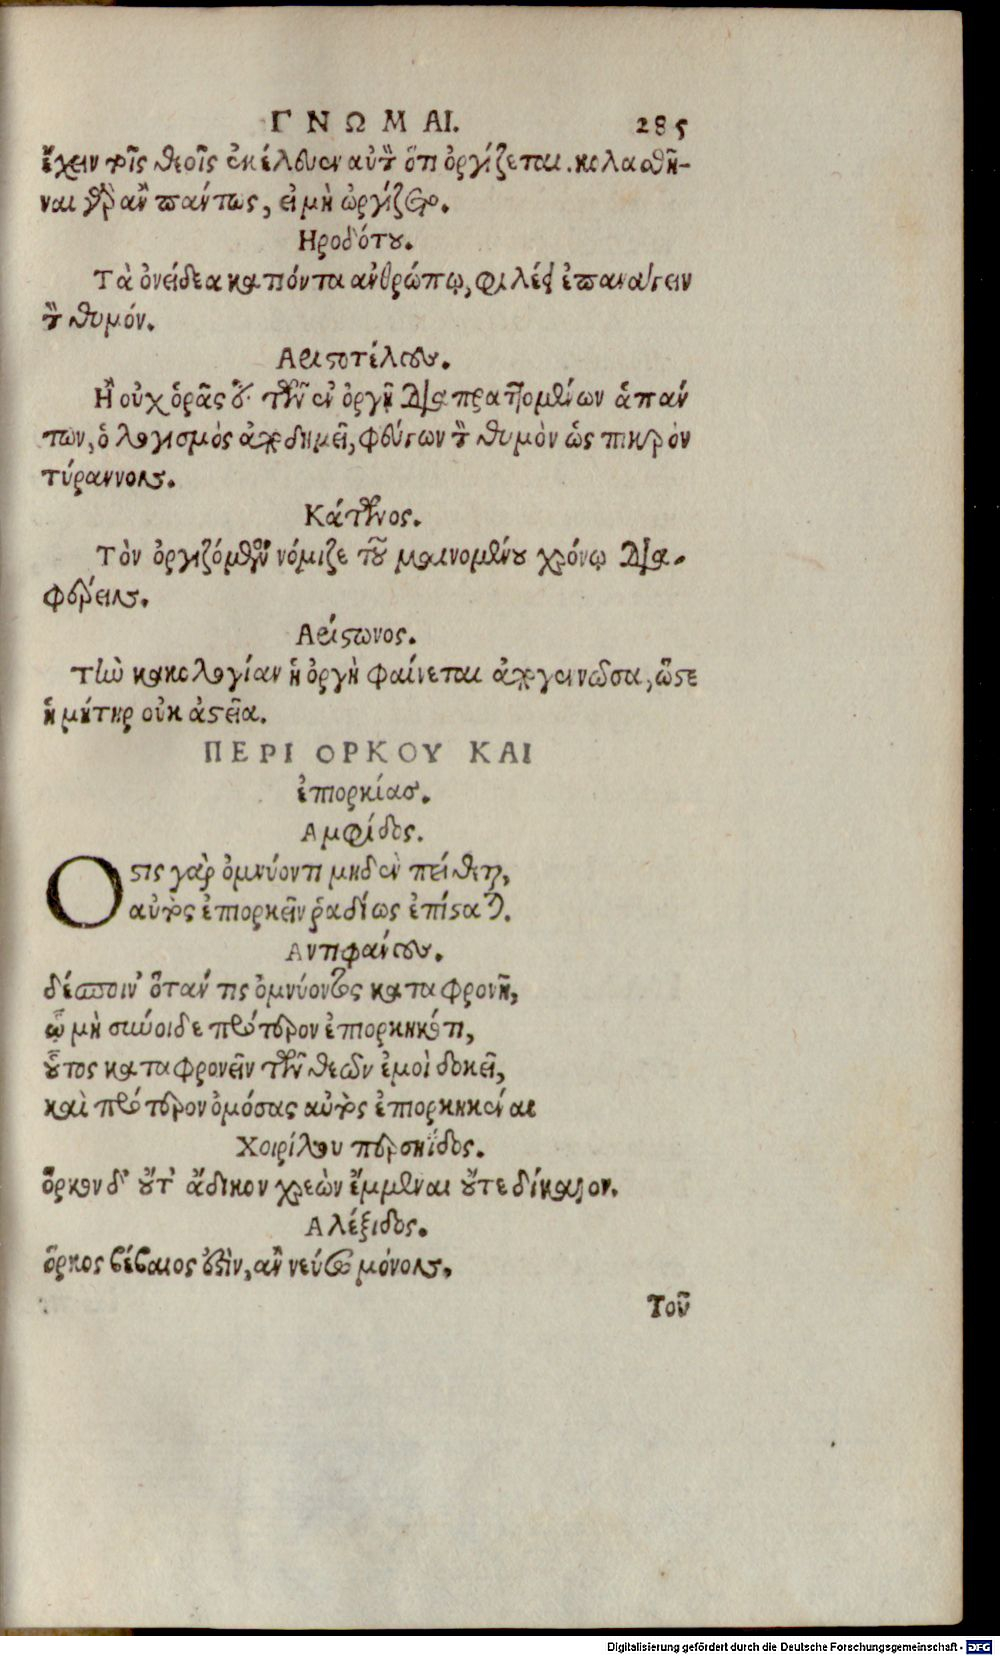 ΓΝΩΜΑΙ. 285
ἔχειν τοῖς θεοῖς ἐκέλευεν αὐτὸν ὅτι ὀργίζεται. κολασθῆ-
ναι γὰρ ἂν πάντως, εἰ μὴ ὠργίζετο.
Ηροδότου.
Τὰ ὀνείδεα κατιόντα ἀνθρώπῳ, φιλέει ἐπανάγειν
τὸν θυμόν.
Αριστοτέλους.
Ἢ οὐχ ὁρᾶς ὅτι τῶν ἐν ὀργῇ διαπραττομένων ἁπάν
των, ὁ λογισμὸς ἀποδημεῖ, φεύγων τὸν θυμὸν ὡς πικρὸν
τύραννον.
Κάτωνος.
Τὸν ὀργιζόμενον νόμιζε τοῦ μαινομένου χρόνῳ δια-
φέρειν.
Αρίστωνος.
Τὴν κακολογίαν ἡ ὀργὴ φαίνεται ἀπογεννῶσα, ὥστε
ἡ μήτηρ οὐκ ἀστεῖα.
ΠΕΡΙ ΟΡΚΟΥ ΚΑΙ
ἐπιορκίας.
Αμφίδος.
Οστις γὰρ ὀμνύοντι μηδὲν πείθεται,
αὐτὸς ἐπιορκεῖν ῥαδίως ἐπίσταται.
Αντιφάνους.
δέσποιν' ὅταν τις ὀμνύοντος καταφρονῇ,
ᾧ μὴ σύνοιδε πρότερον ἐπιορκηκότι,
οὗτος καταφρονεῖν τῶν θεῶν ἐμοὶ δοκεῖ,
καὶ πρότερον ὀμόσας αὐτὸς ἐπιορκηκέναι
Χοιρίλου περσηΐδος.
ὅρκον δ' οὔτ' ἄδικον χρεὼν ἔμμεναι οὔτε δίκαιον.
Αλέξιδος.
ὅρκος βέβαιος ἐστὶν, ἂν νεύσω μόνον,
Τοῦ
Digitalisierung gefördert durch die Deutsche Forschungsgemeinschaft - DFG